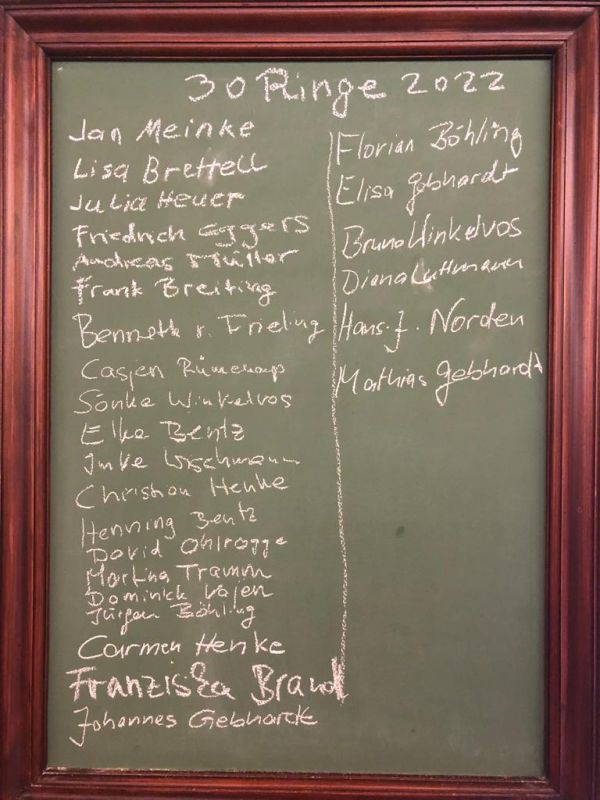 30 Ringe 2022
Jan Meinke
Lisa Brettell
Julia Heuer
Friedrich Eggers
Andreas Müller
Frank Breiting
Benneth v. Frieling
Casjen
Sönke Winkelvos
Elke Bentz
Imke
Christian Henke
Henning Bentz
David Ohlrogge
Martina Tramm
Dominick Vajen
Jürgen Böhling
Carmen Henke
Franziska Brandt
Johannes Gebhardt
Florian Böhling
Elisa Gebhardt
Bruno Winkelvos
Diana Luttmann
Hans-J. Norden
Mathias Gebhardt